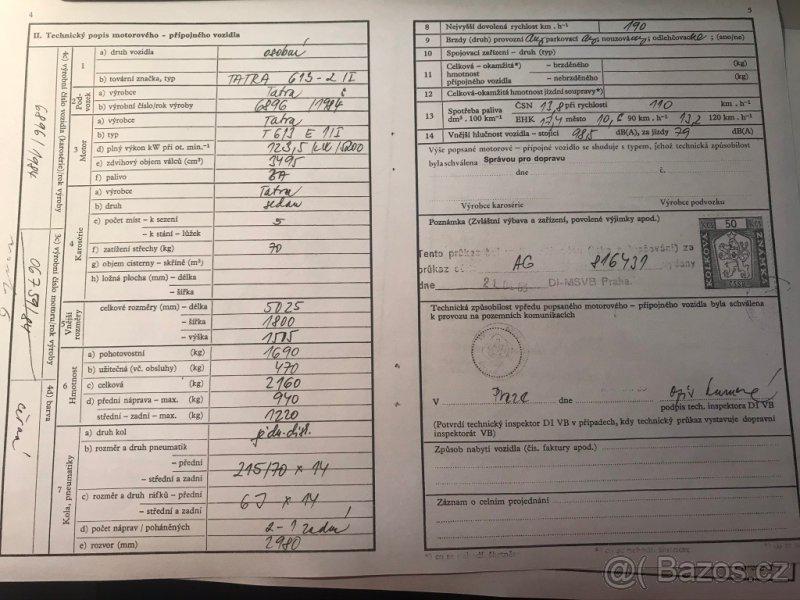 4
II. Technický popis motorového – přípojného vozidla
1
a) druh vozidla osobní
b) tovární značka, typ TATRA 613-2 II
2 Podvozek
a) výrobce Tatra
b) výrobní číslo/rok výroby 6896 /1984
3 Motor
a) výrobce Tatra
b) typ T 613 E 1/I
d) plný výkon kW při ot. min.⁻¹ 123,5 / kW / 5200
e) zdvihový objem válců (cm³) 3495
f) palivo BA
4 Karosérie
a) výrobce Tatra
b) druh sedan
e) počet míst – k sezení 5
– k stání – lůžek
f) zatížení střechy (kg) 70
g) objem cisterny – skříně (m³)
h) ložná plocha (mm) – délka
– šířka
5 Vnější rozměry
celkové rozměry (mm) – délka 5025
– šířka 1800
– výška 1505
6 Hmotnost
a) pohotovostní (kg) 1690
b) užitečná (vč. obsluhy) (kg) 470
c) celková (kg) 2160
d) přední náprava – max. (kg) 940
střední – zadní – max. (kg) 1220
7 Kola, pneumatiky
a) druh kol
b) rozměr a druh pneumatik
– přední
– střední a zadní 215/70 × 14
c) rozměr a druh ráfků – přední
– střední a zadní 6J × 14
d) počet náprav / poháněných 2 – 1 zadní
e) rozvor (mm) 2980
4c) výrobní číslo vozidla (karosérie)/rok výroby
6896/1984
3c) výrobní číslo motoru/rok výroby
06759/84
4d) barva
5
8 Nejvyšší dovolená rychlost km . h⁻¹ 190
9 Brzdy (druh) provozní parkovací nouzová odlehčovací (ano/ne)
10 Spojovací zařízení – druh (typ)
11 Celková – okamžitá*) hmotnost přípojného vozidla
– brzděného (kg)
– nebrzděného (kg)
12 Celková-okamžitá hmotnost jízdní soupravy*) (kg)
13 Spotřeba paliva dm³ . 100 km⁻¹
ČSN 13,8 při rychlosti 110 km . h⁻¹
EHK 17,4 město 10,6 90 km . h⁻¹ 13,2 120 km . h⁻¹
14 Vnější hlučnost vozidla – stojící 98,5 dB(A), za jízdy 79 dB(A)
Výše popsané motorové – přípojné vozidlo se shoduje s typem, jehož technická způsobilost
byla schválena Správou pro dopravu
dne č.
Výrobce karosérie Výrobce podvozku
Poznámka (Zvláštní výbava a zařízení, povolené výjimky apod.)
KOLKOVÁ 50 ZNÁMKA
Kčs Kčs
ČSSR
Tento průkaz za
průkaz AG 816431
dne DI-MSVB Praha
Technická způsobilost vpředu popsaného motorového – přípojného vozidla byla schválena
k provozu na pozemních komunikacích
V Praze dne
podpis tech. inspektora DI VB
(Potvrdí technický inspektor DI VB v případech, kdy technický průkaz vystavuje dopravní
inspektorát VB)
Způsob nabytí vozidla (čís. faktury apod.)
Záznam o celním projednání
@ Bazos.cz